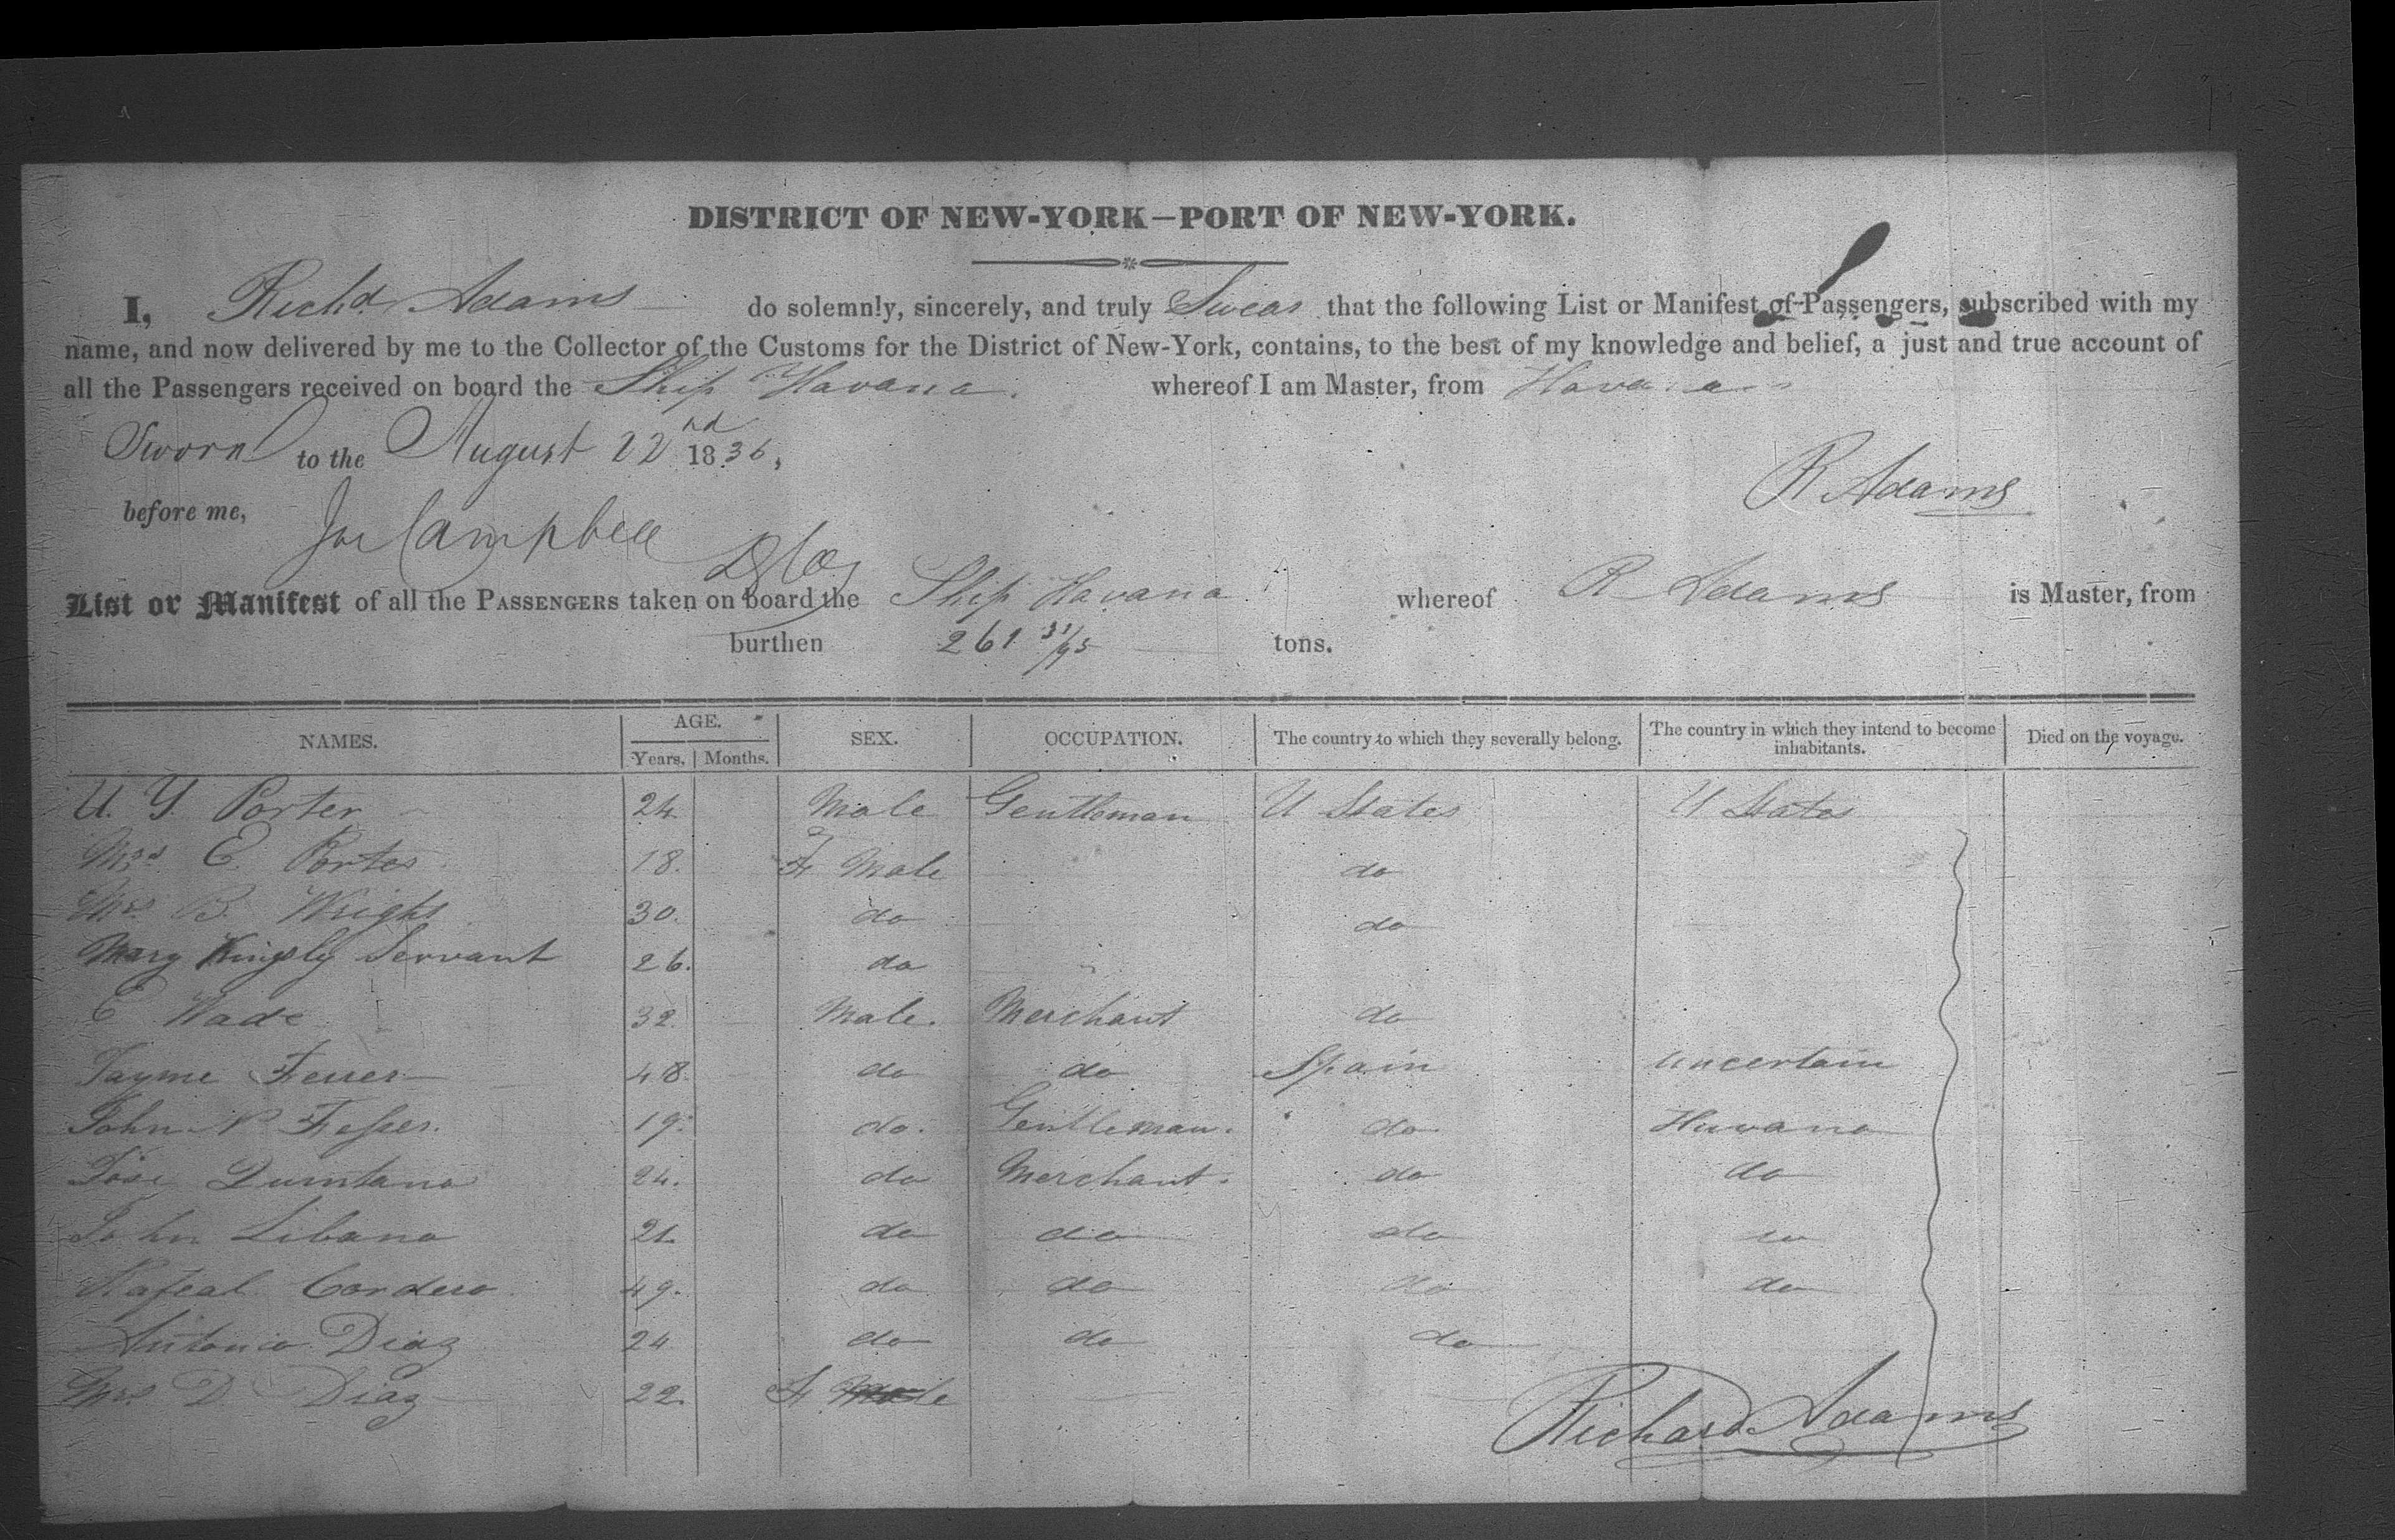 DISTRICT OF NEW-YORK—PORT OF NEW-YORK.
I, Richd. Adams do solemnly, sincerely, and truly Swear that the following List or Manifest of Passengers, subscribed with my
name, and now delivered by me to the Collector of the Customs for the District of New-York, contains, to the best of my knowledge and belief, a just and true account of
all the Passengers received on board the Ship Havana. whereof I am Master, from Havana
Sworn to the August 22nd 1836,
R Adams
before me, Campbell
List or Manifest of all the PASSENGERS taken on board the Ship Havana whereof R Adams is Master, from
burthen 261 31/95 tons.
NAMES. AGE. Years. Months. SEX. OCCUPATION. The country to which they severally belong. The country in which they intend to become inhabitants. Died on the voyage.
U. Y. Porter 24 Male Gentleman U States U States
Mrs E. Porter 18. F Male do
Mrs B. Wright 30. do do
Mary Kingsly Servant 26. do
E Wade 32. Male. Merchant do
Jayme Ferrer 48. do do Spain uncertain
John N Fesser. 19. do. Gentleman. do Havana
Jose Quintana 24. do Merchant. do do
John Libano 21. do do do do
Rafeal Cordero 49. do do do do
Antonio Diaz 24 do do do
Mrs D Diaz 22. F Male
Richard Adams